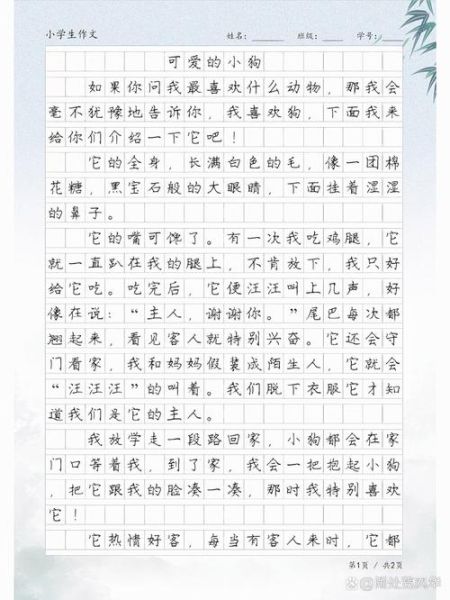 小学生作文 姓名： 班级： 学号：
可爱的小狗
如果你问我最喜欢什么动物，那我会
毫不犹豫地告诉你，我喜欢狗，下面我来
给你们介绍一下它吧！
它的全身，长满白色的毛，像一团棉
花糖，黑宝石般的大眼睛，下面挂着湿湿
的鼻子。
它的嘴可馋了。有一次我吃鸡腿，它
就一直趴在我的腿上，不肯放下，我只好
给它吃。吃完后，它便汪汪叫上几声，好
像在说：“主人，谢谢你。”尾巴每次都
翘起来，看见客人就特别兴奋。它还会守
门看家，我和妈妈假装成陌生人，它就会
“汪汪汪”的叫着。我们脱下衣服它才知
道我们是它的主人。
我放学走一段路回家，小狗都会在家
门口等着我，到了家，我会一把抱起小狗
，把它跟我的脸凑一凑，那时我特别喜欢
它！
它热情好客，每当有客人来时，它都
第1页 / 共2页